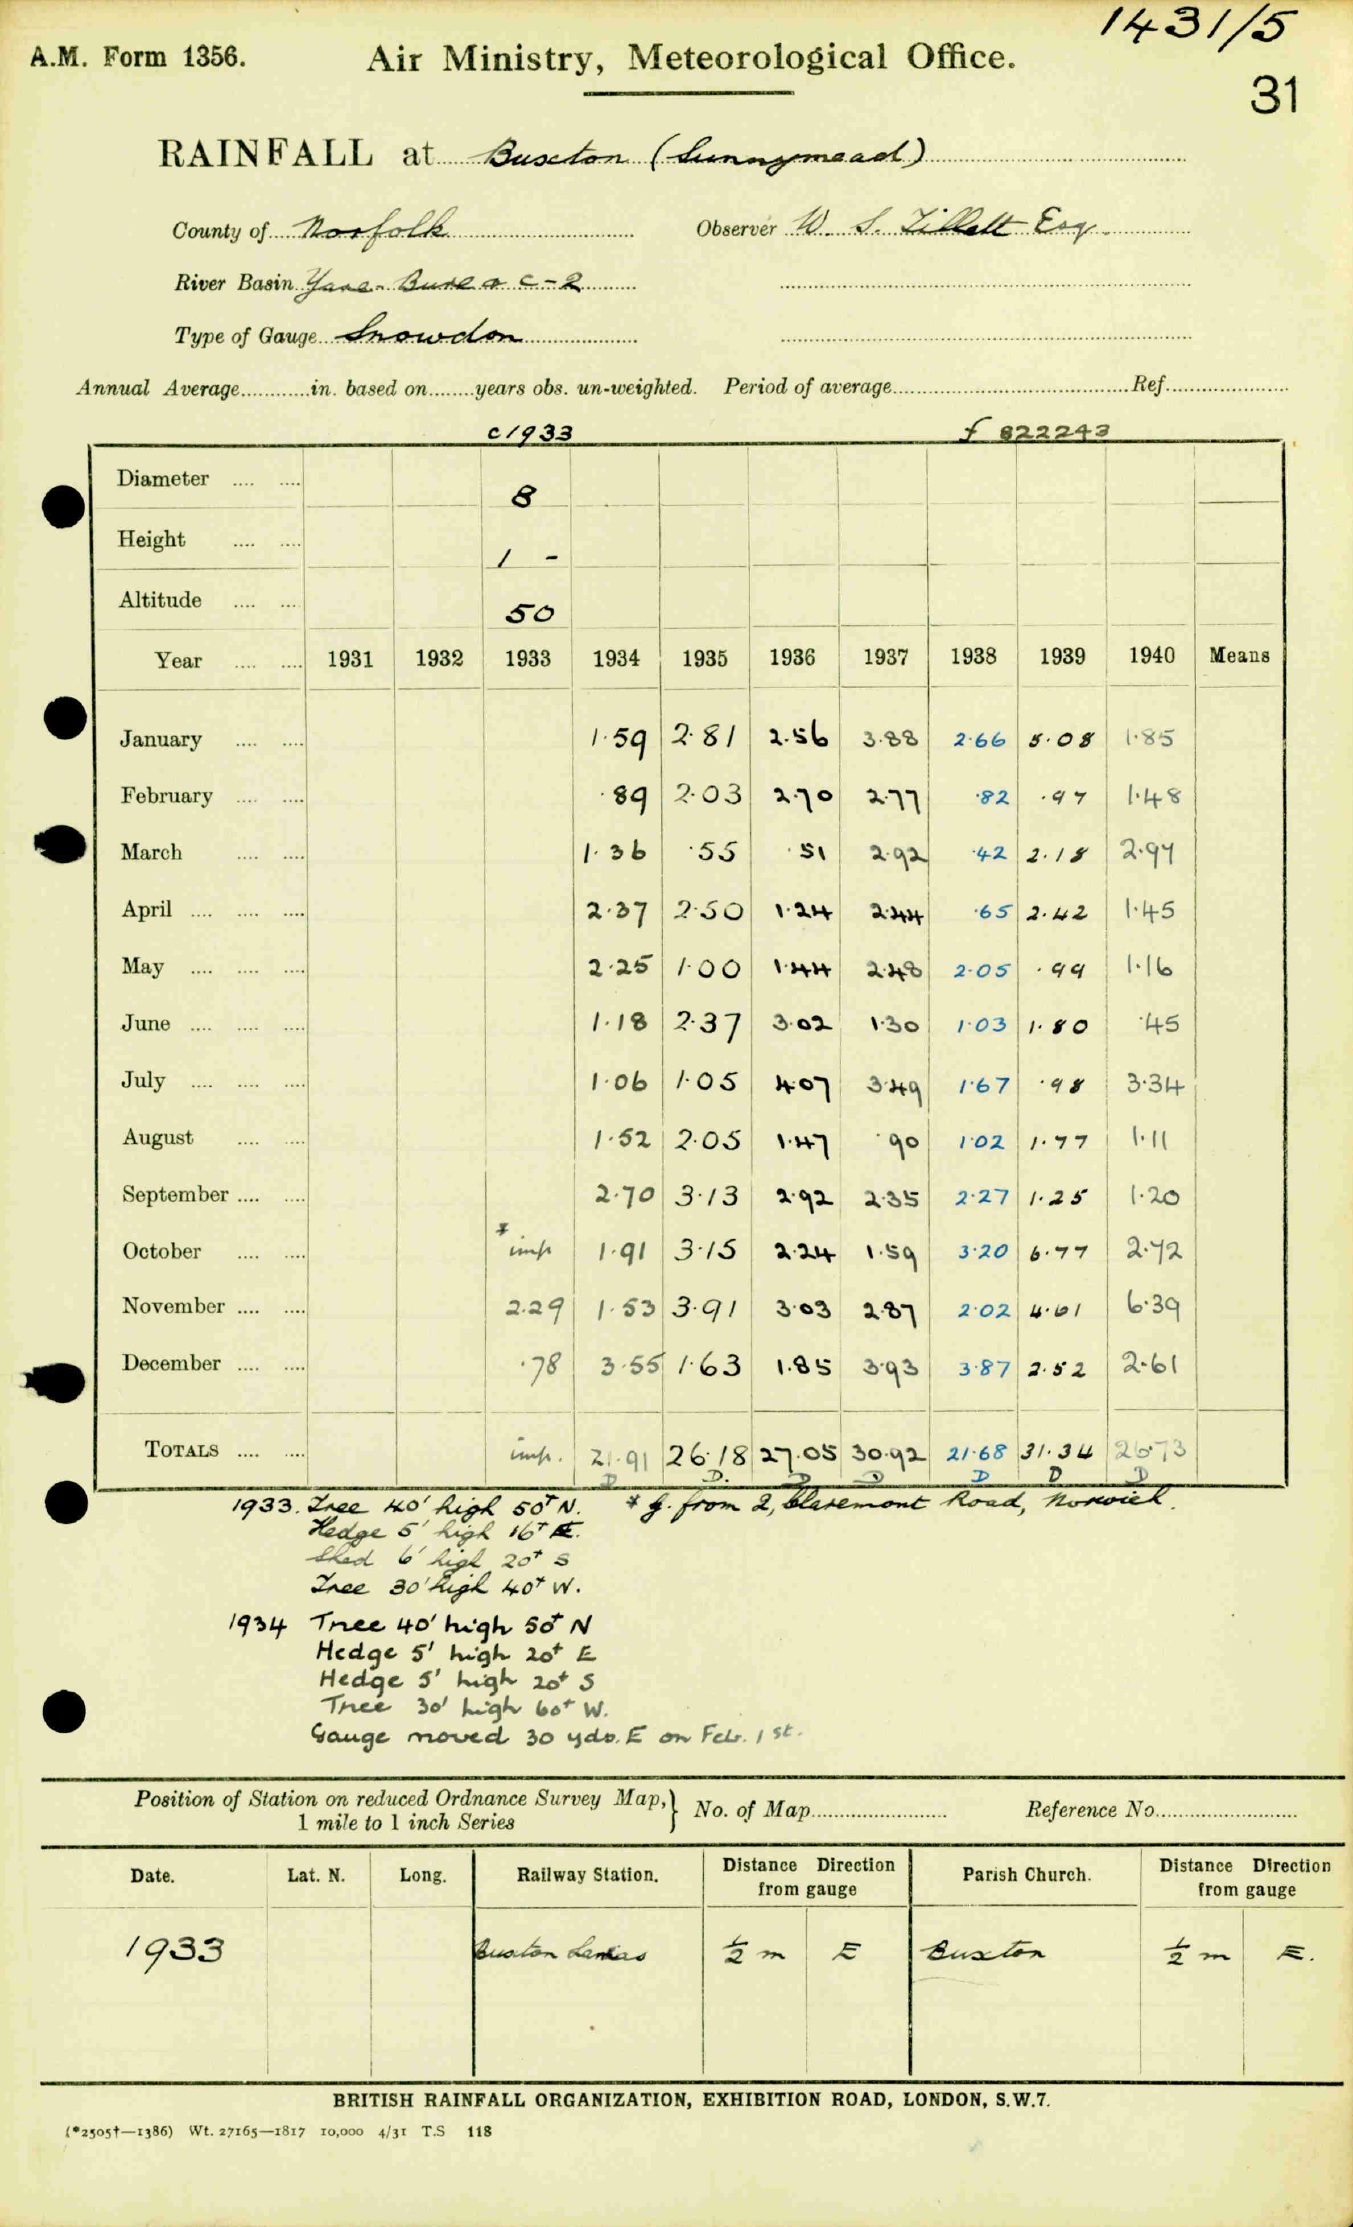 1431/5
A.M. Form 1356. Air Ministry, Meteorological Office.
31
RAINFALL at Buxton (Sunnymead)
County of Norfolk Observer W. S. Tillett Esq.
River Basin Yare-Bure & c-2
Type of Gauge Snowdon
Annual Average............in. based on........years obs. un-weighted. Period of average...............Ref...............
c1933 f 822243
Diameter .... .... 8
Height .... .... 1 -
Altitude .... .... 50
Year .... .... 1931 1932 1933 1934 1935 1936 1937 1938 1939 1940 Means
January .... .... 1.59 2.81 2.56 3.88 2.66 5.08 1.85
February .... .... .89 2.03 2.70 2.77 .82 .97 1.48
March .... .... 1.36 .55 .51 2.92 .42 2.18 2.97
April .... .... .... 2.37 2.50 1.24 2.44 .65 2.42 1.45
May .... .... .... 2.25 1.00 1.44 2.48 2.05 .99 1.16
June .... .... .... 1.18 2.37 3.02 1.30 1.03 1.80 .45
July .... .... .... 1.06 1.05 4.07 3.49 1.67 .98 3.34
August .... .... 1.52 2.05 1.47 .90 1.02 1.77 1.11
September .... .... 2.70 3.13 2.92 2.35 2.27 1.25 1.20
October .... .... * imp 1.91 3.15 2.24 1.59 3.20 6.77 2.72
November .... .... 2.29 1.53 3.91 3.03 2.87 2.02 4.61 6.39
December .... .... .78 3.55 1.63 1.85 3.93 3.87 2.52 2.61
TOTALS .... .... imp. 21.91 26.18 27.05 30.92 21.68 31.34 26.73
D D. D D D D D
1933. Tree 40' high 50+ N. * g. from 2, Claremont Road, Norwich.
Hedge 5' high 16+ E.
Shed 6' high 20+ S
Tree 30' high 40+ W.
1934 Tree 40' high 50+ N
Hedge 5' high 20+ E
Hedge 5' high 20+ S
Tree 30' high 60+ W.
Gauge moved 30 yds. E on Feb. 1st.
Position of Station on reduced Ordnance Survey Map,} No. of Map............... Reference No...............
1 mile to 1 inch Series
Date. Lat. N. Long. Railway Station. Distance Direction from gauge Parish Church. Distance Direction from gauge
1933 Buxton Lamas ½ m E Buxton ½ m E.
BRITISH RAINFALL ORGANIZATION, EXHIBITION ROAD, LONDON, S.W.7.
(*2505†—1386) Wt. 27165—1817 10,000 4/31 T.S 118